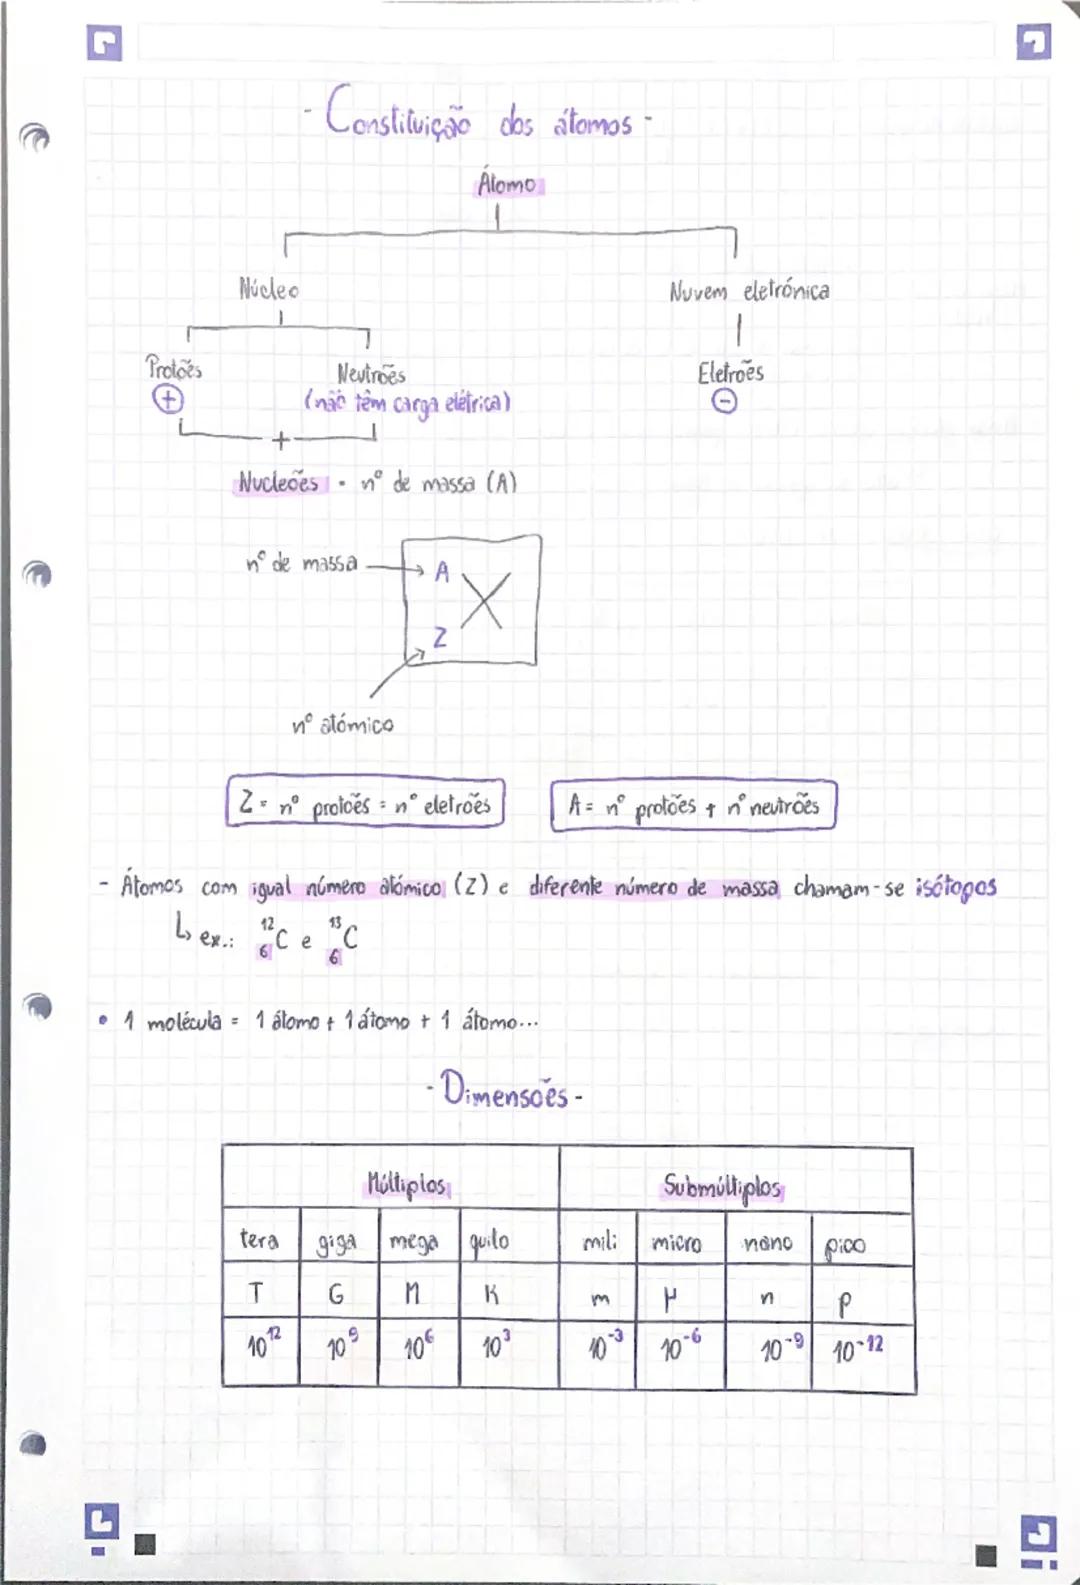 - Constituição dos átomos -
Átomo
Núcleo
Nuvem eletrónica
Protões
Neutrões
Eletrões
+
(não têm carga elétrica)
-
+
Nucleões • nº de massa (A)
nº de massa → A
X
Z
nº atómico
Z = nº protões = nº eletrões
A = nº protões + nº neutrões
- Átomos com igual número atómico (Z) e diferente número de massa chamam-se isótopos
↳ ex.: ¹²₆C e ¹³₆C
• 1 molécula = 1 átomo + 1 átomo + 1 átomo...
- Dimensões -
Múltiplos Submúltiplos
tera giga mega quilo mili micro nano pico
T G M K m μ n p
10¹² 10⁹ 10⁶ 10³ 10⁻³ 10⁻⁶ 10⁻⁹ 10⁻¹²